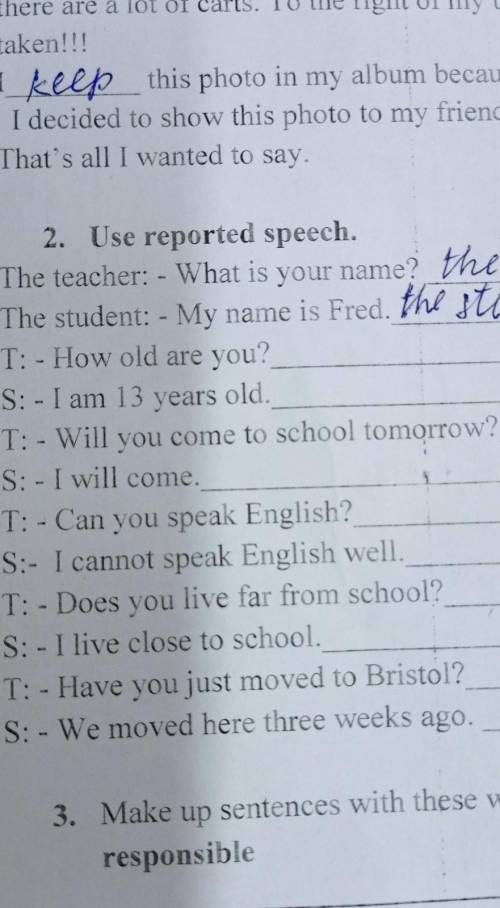 there are a lot of carts. To the right of my
taken!!!
I keep this photo in my album
I decided to show this photo to my
That's all I wanted to say.
2. Use reported speech.
The teacher: - What is your name? the
The student: - My name is Fred. the
T: - How old are you?
S: - I am 13 years old.
T: - Will you come to school tomorrow?
S: - I will come.
T: - Can you speak English?
S:- I cannot speak English well.
T: - Does you live far from school?
S: - I live close to school.
T: - Have you just moved to Bristol?
S: - We moved here three weeks ago.
3. Make up sentences with these
responsible